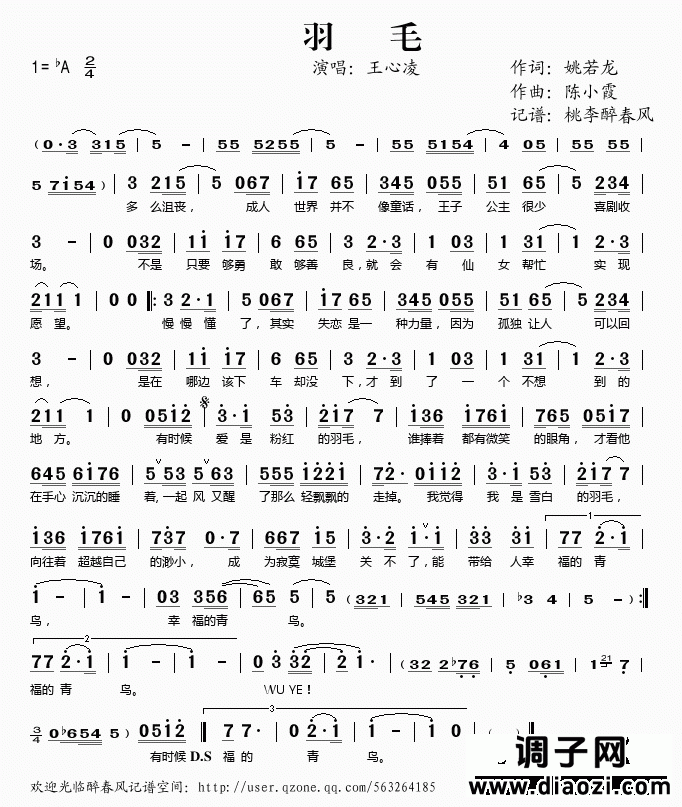 羽 毛
1=♭A 2/4 演唱：王心凌 作词：姚若龙
作曲：陈小霞
记谱：桃李醉春风
(0·3 315 | 5 - | 55 5255 | 5 - | 55 5154 | 4 05 | 55 55 |
5 7154) | 3 215 | 5 067 | 17 65 | 345 055 | 51 65 | 5 234 |
多么沮丧， 成人 世界 并不 像童话， 王子 公主 很少 喜剧收
3 - | 0 032 | 11 17 | 6 65 | 3 2·3 | 1 03 | 1 31 | 1 2·3 |
场。 不是 只要 够勇 敢 够善 良，就 会 有 仙 女 帮忙 实现
211 1 | 0 0 |: 3 2·1 | 5 067 | 17 65 | 345 055 | 51 65 | 5 234 |
愿 望。 慢 慢 懂 了，其实 失恋 是一 种力量，因为 孤独 让人 可以回
3 - | 0 032 | 11 17 | 6 65 | 3 2·3 | 1 03 | 1 31 | 1 2·3 |
想， 是在 哪边 该下 车 却没 下，才 到 了 一 个 不想 到的
211 1 | 0 0512 | 3·1 53 | 217 7 | 136 1761 | 765 0517 |
地 方。 有时候 爱 是 粉红 的羽毛， 谁捧着 都有微笑 的眼角，才看他
645 6176 | 5 53 5 63 | 555 1221 | 72· 0512 | 3·1 53 | 217 7 |
在手心 沉沉的睡 着，一起 风 又醒 了那么 轻飘飘的 走掉。我觉得 我 是 雪白 的羽毛，
136 1761 | 737 0·7 | 667 15 | 3·2 1·1 | 33 31 | 77 2·1 |
向往着 超越自己 的渺小， 成 为寂寞 城堡 关 不 了，能 带给 人幸 福的 青
1 - | 1 - | 03 356 | 6 65 5 | 5 (321 | 545 321 | ♭3 4 | 5 - ) :|
鸟， 幸 福的青 鸟。
77 2·1 | 1 - | 1 - | 0 3 32 | 2 1· | (32 32 2♭76 | 5 061 | 1 7 |
福的 青 鸟。 WU YE！
3/4 0♭654 5) | 0512 || 7 7· | 0 21 | 1 - | 1 0 (
有时候 D.S 福 的 青 鸟。
欢迎光临醉春风记谱空间：http://user.qzone.qq.com/563264185
调子网
www.diaozi.com